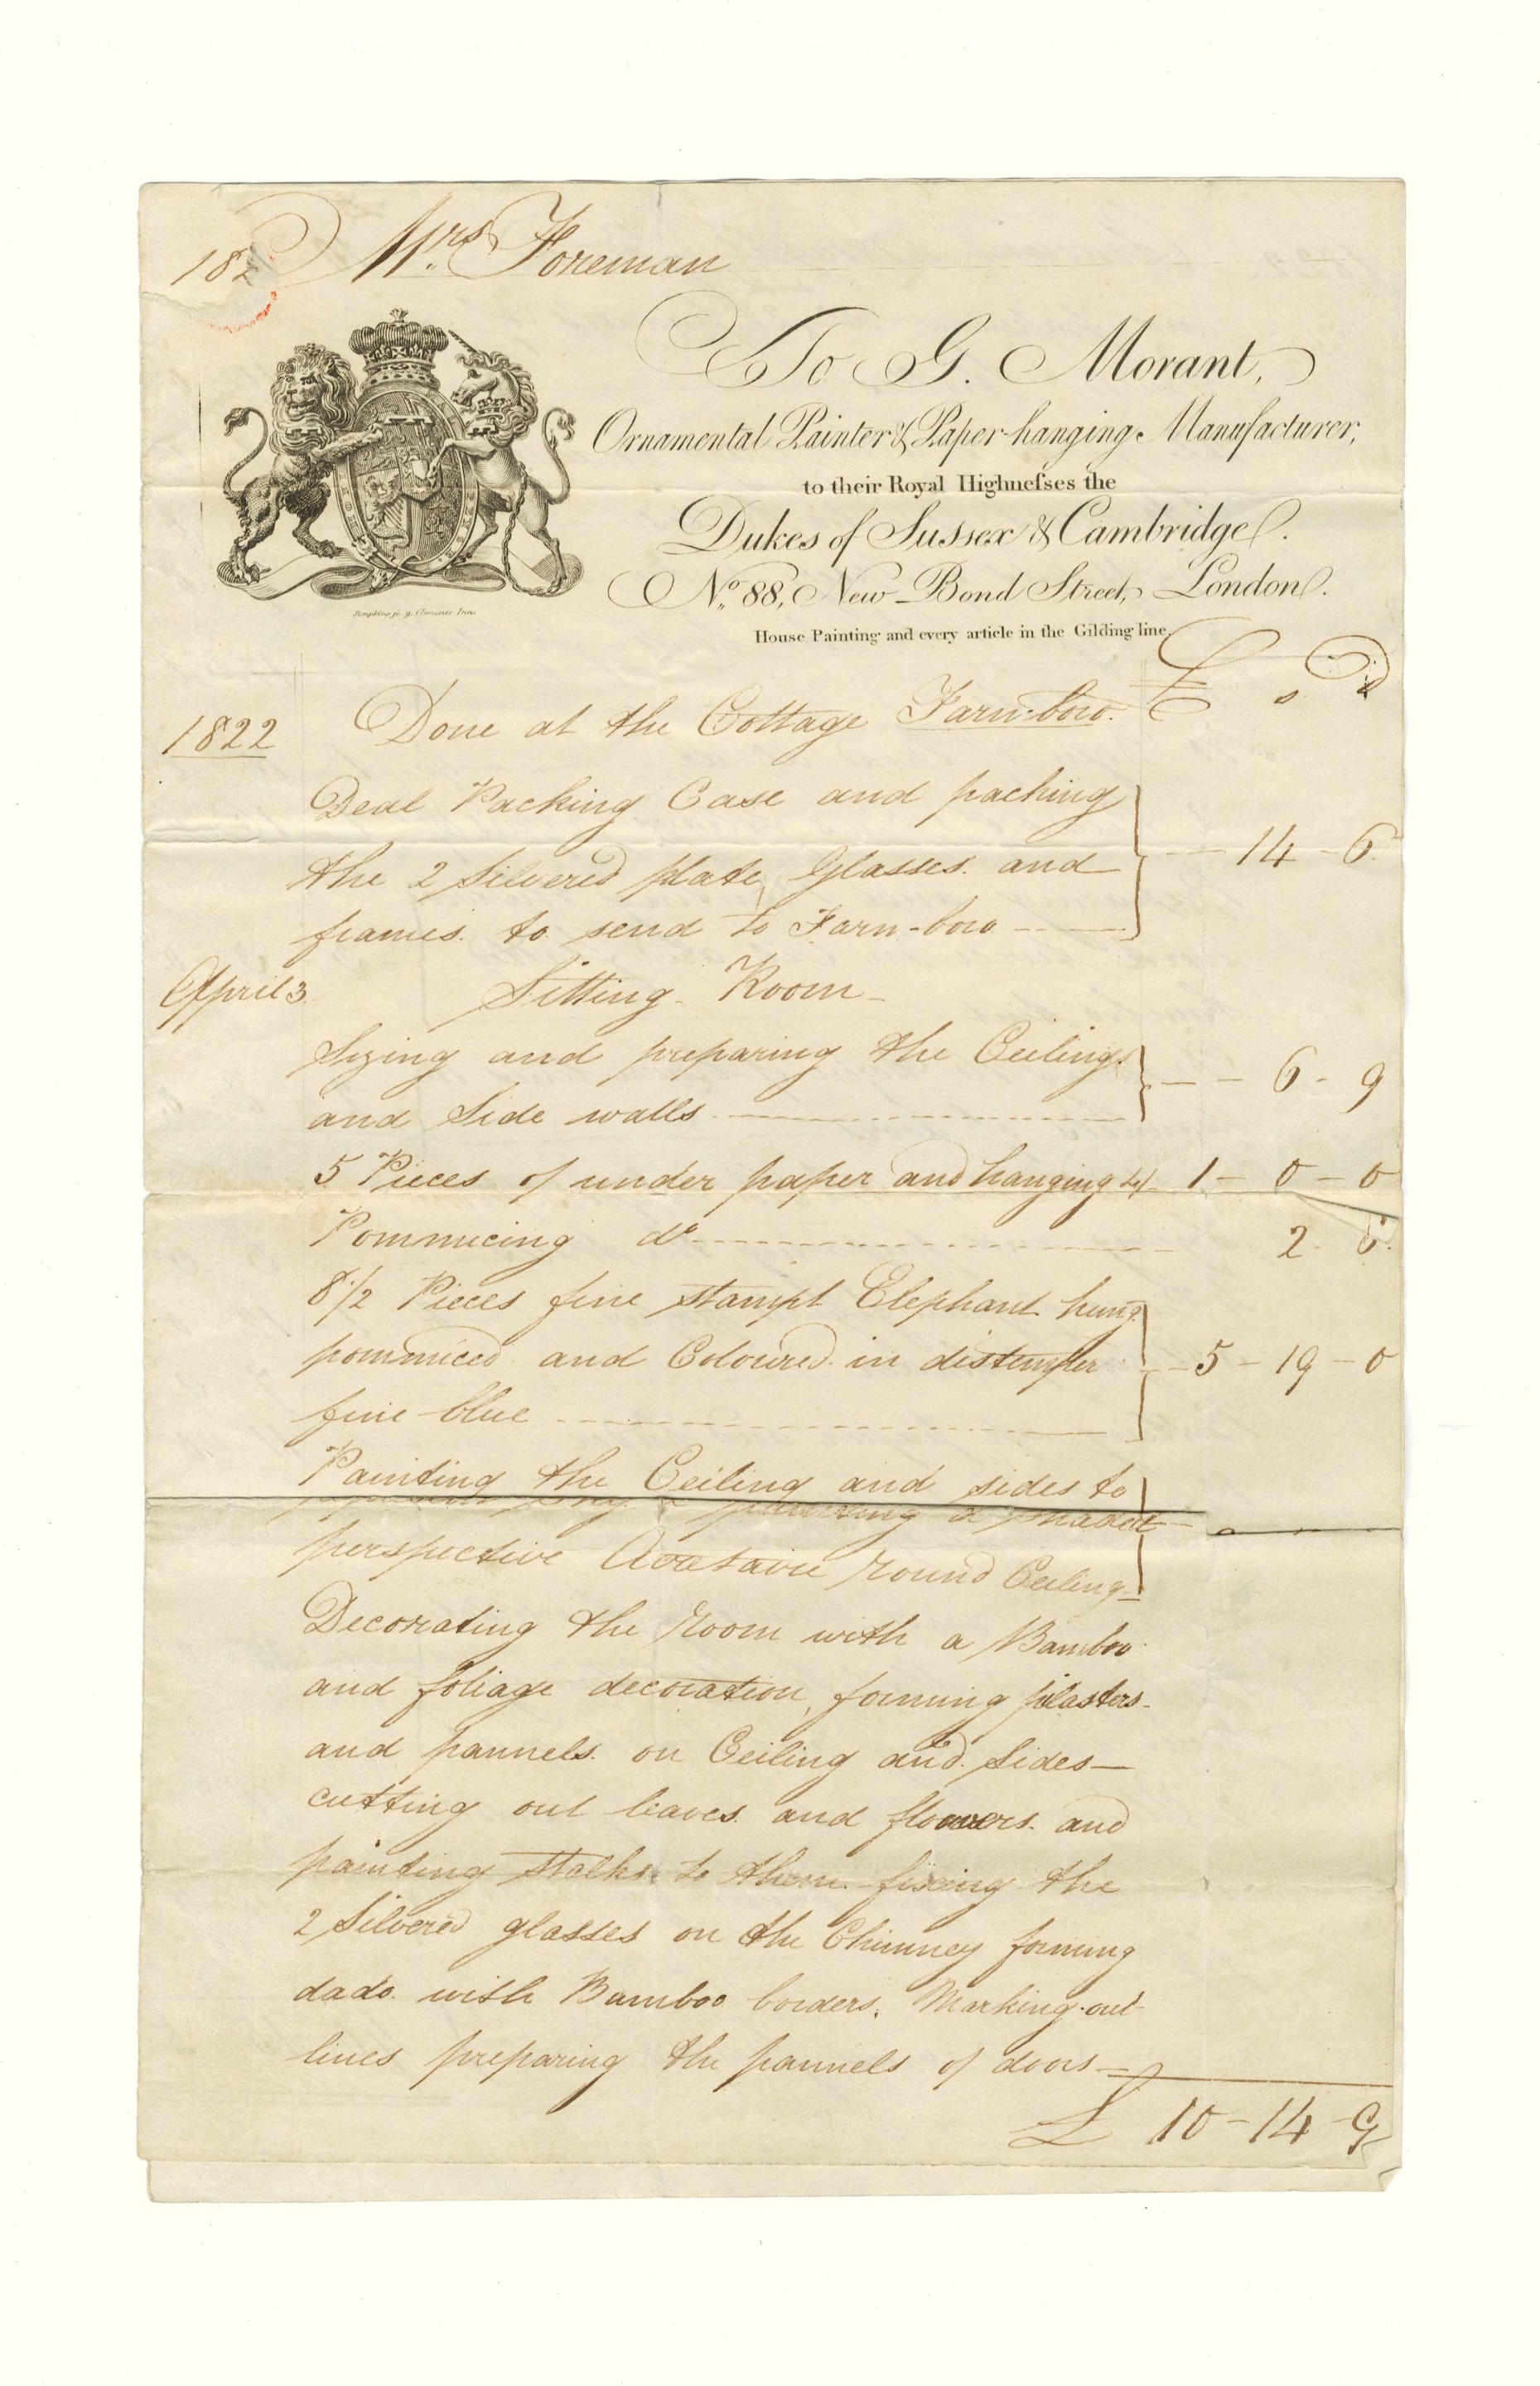 182 Mrs. Foreman
To G. Morant,
Ornamental Painter & Paper-hanging Manufacturer,
to their Royal Highneſses the
Dukes of Sussex & Cambridge.
No. 88, New Bond Street, London.
House Painting and every article in the Gilding line.
£ s d
1822 Done at the Cottage Farn-boro.
Deal Packing Case and packing
the 2 Silvered plate Glasses. and — 14 - 6
frames. to send to Farn-boro
April 3. Sitting Room
Sizing and preparing the Ceilings
and Side walls — 6 - 9
5 Pieces of under paper and hanging 4/- 1 - 0 - 0
Pommicing do 2 - 6
8 1/2 Pieces fine stampt Elephant hung
pommiced and Coloured in distemper 5 - 19 - 0
fine blue
Painting the Ceiling and sides to
perspective round Ceiling
Decorating the Room with a Bamboo
and foliage decoration, forming pilasters
and pannels. on Ceiling and Sides
cutting out leaves and flowers. and
painting stalks to them fixing the
2 Silvered glasses on the Chimney forming
dado. with Bamboo borders. Marking out
lines preparing the pannels of doors
£ 10 - 14 - 9